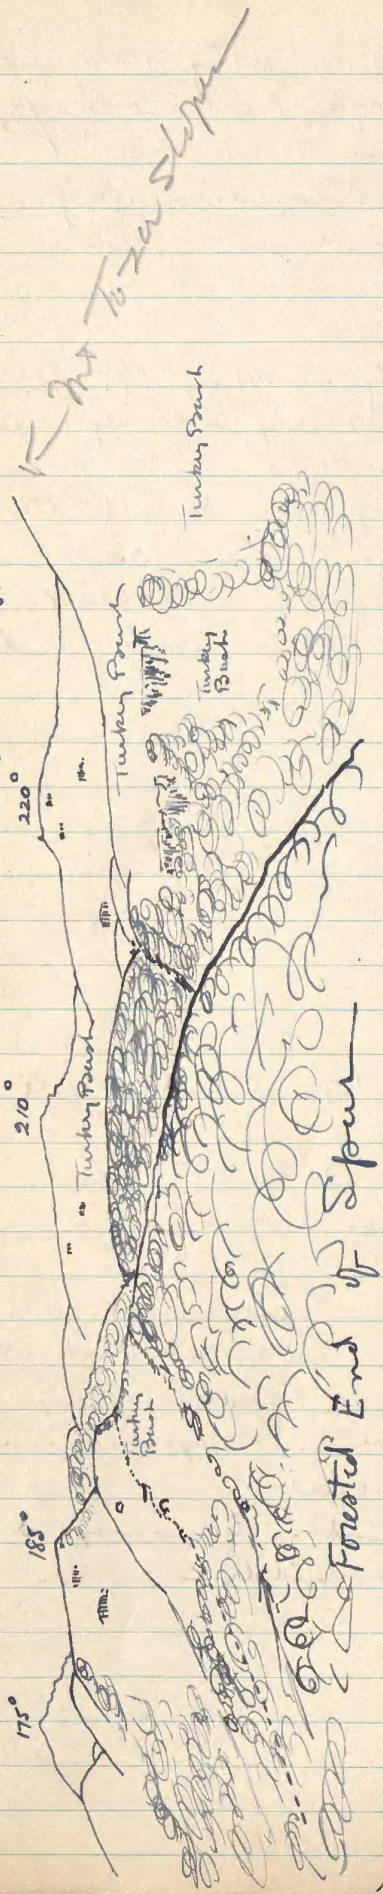 175°
185°
210°
220°
← Mt Tozer Slopes
Turkey Bush
Turkey Bush
Turkey
Bush
Turkey Bush
Turkey
Bush
Forested End of Spur